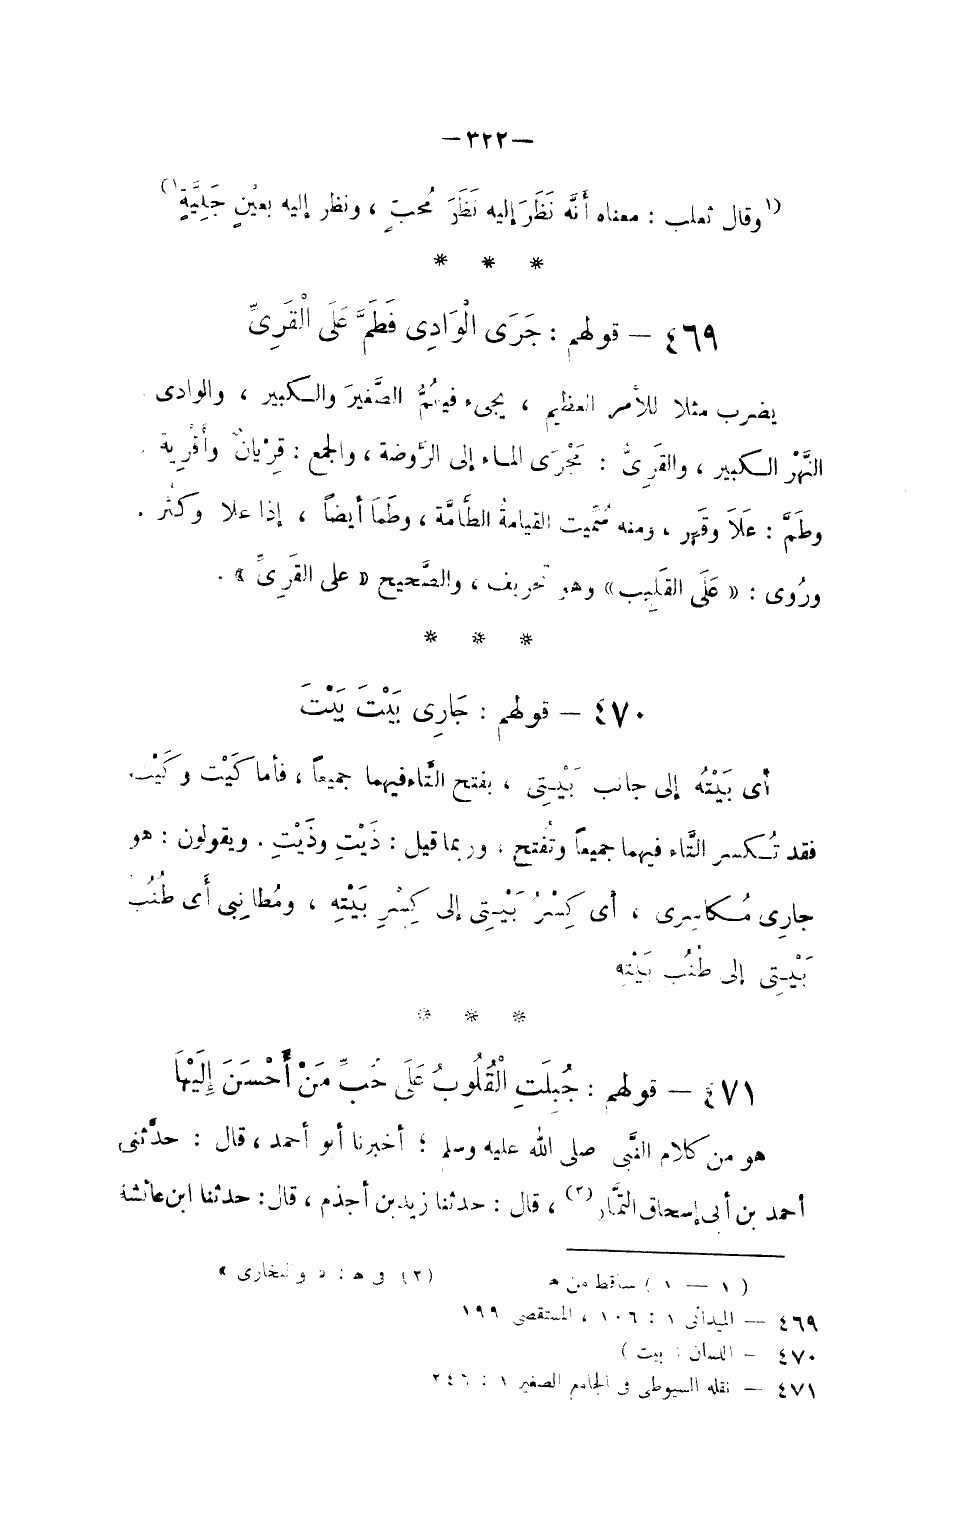 —٣٢٢—
(١وقال ثعلب : معناه أَنَّه نَظَرَ إليه نَظَرَ مُحبٍّ ، ونظر إليه بعيْنٍ جَلِيَّةٍ١)
* * *
٤٦٩ — قولهم : جَرَى الْوَادِى فَطَمَّ عَلَى الْقَرِىِّ
يضرب مثلا للأمر العظيم ، يجىء فيعُمُّ الصَّغيرَ والكبير ، والوادى
النَّهْر الكبير ، والقَرِىُّ : مَجْرَى الماء إلى الرَّوضة ، والجمع : قِرْيانٌ وأَقْرِية .
وطَمَّ : عَلاَ وقَهر ، ومنه سُمِّيت القيامةُ الطَّامَّة ، وطَمَا أيضاً ، إذا علا وكثُر .
ورُوى : « عَلَى القَلِيب» وهو تحريف ، والصَّحيح « على القَرِىِّ » .
* * *
٤٧٠ — قولهم : جَارِى بَيْتَ بَيْتَ
أى بَيْتُه إلى جانب بَيْتِى ، بفتح التَّاء فيهما جميعاً ، فأما كَيْت وكَيْت،
فقد تُكسر التَّاء فيهما جميعاً وتُفتح ، وربما قيل : ذَيْتِ وذَيْتِ . ويقولون : هو
جارِى مُكاسِرِى ، أى كِسْرُ بَيْتِى إلى كِسْرِ بَيْتِه ، ومُطانِبِى أى طُنُب
بَيْتِى إلى طُنُب بَيْتِه
* * *
٤٧١ — قولهم : جُبِلَتِ الْقُلُوبُ عَلَى حُبِّ مَنْ أَحْسَنَ إِلَيْهَا
هو من كلام النَّبى صلى الله عليه وسلم ؛ أخبرنا أبو أحمد ، قال : حدَّثنى
أحمد بن أبى إسحاق التَّمَّار (٢) ، قال : حدثنا زيد بن أجذم ، قال : حدثنا ابن عائشة
(١ — ١) ساقط من هـ (٢) فى هـ : « والبخارى »
٤٦٩ — الميدانى ١ : ١٠٦ ، المستقصى ١٩٩
٤٧٠ — اللسان : بيت )
٤٧١ — نقله السيوطى فى الجامع الصغير ١ : ٢٤٦